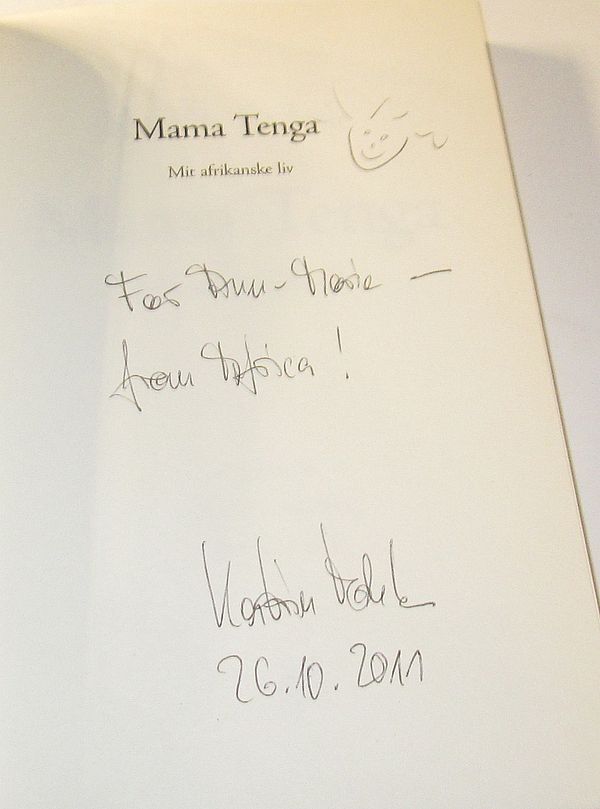 Mama Tenga
Mit afrikanske liv
For Ann-Marie —
from Africa!
Katrin Rohde
26.10.2011